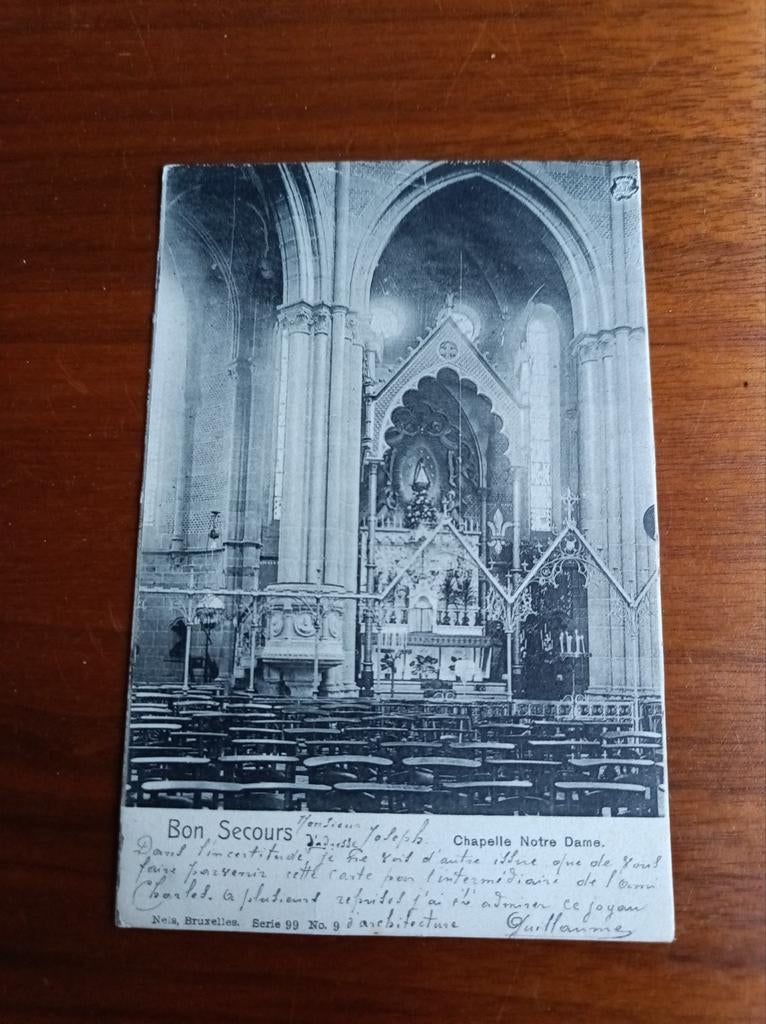 Bon Secours Monsieur Joseph. Chapelle Notre Dame.
d'adresse
Dans l'incertitude, je ne vois d'autre issue que de vous
faire parvenir cette carte par l'intermédiaire de l'ami
Charles. A plusieurs reprises j'ai été admirer ce joyau
Nels, Bruxelles. Serie 99 No. 9 d'architecture Guillaume